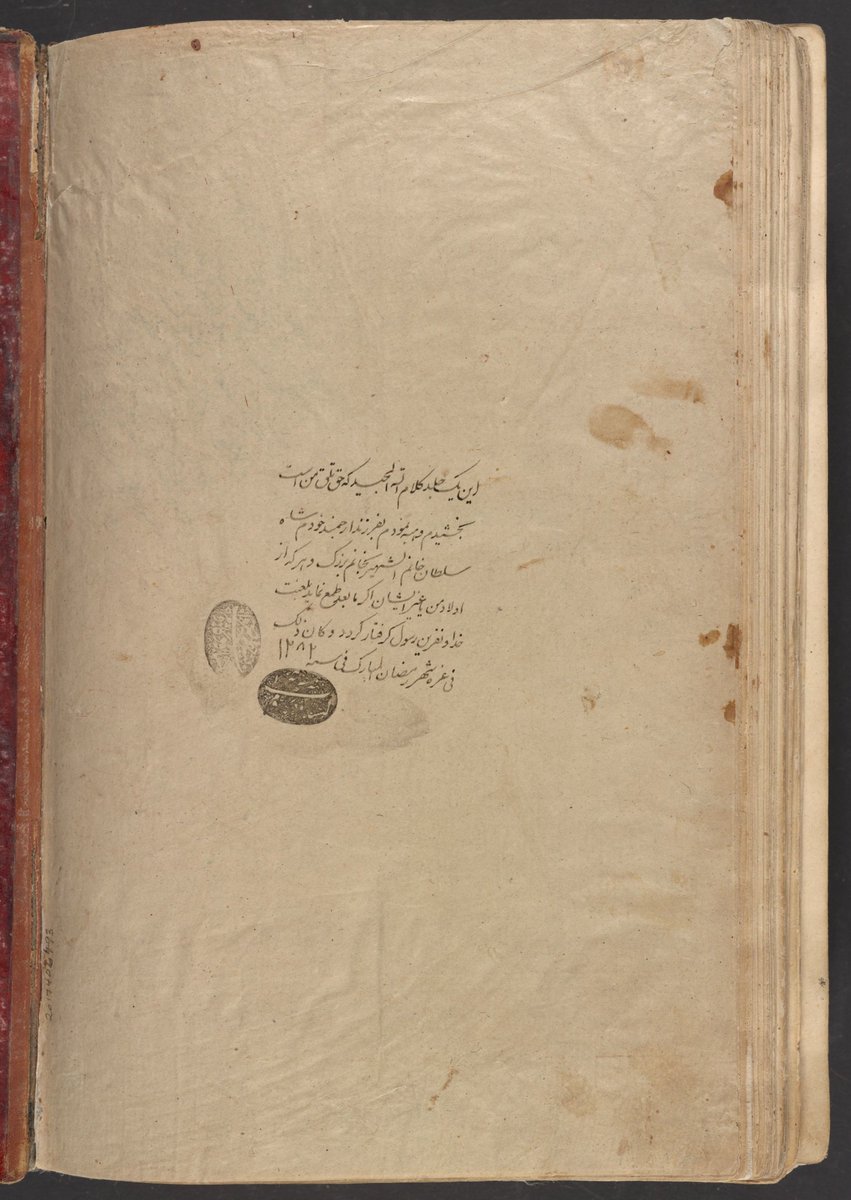 این یک جلد کلام الله المجید که حق و تعلق من است
بخشیدم و هبه نمودم بفرزند ارجمند خودم شاه
سلطان خانم الشهیر بخانم بزرگ و هر که از
اولاد من یا غیر ایشان اگر طمع نماید بلعنت
خدا و نفرین رسول گرفتار گردد و کان ذلک
فی غره شهر رمضان المبارک فی سنه ۱۲۸۲
2017402493